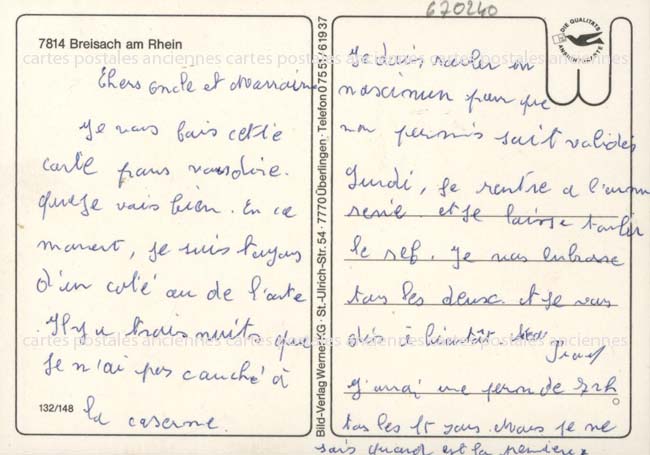 670240
7814 Breisach am Rhein
DIE QUALITÄTS ANSICHTSKARTE
cartes postales anciennes cartes postales anciennes cartes postales anciennes
Chers oncle et Marraine
Je vous fais cette
carte pour vous dire.
que je vais bien. En ce
moment, je suis toujours
d'un coté ou de l'autre
. Il y a trois nuits que
Je n'ai pas couché à
la caserne.
132/148
Bild-Verlag Werner KG · St.-Ulrich-Str. 54 · 7770 Überlingen · Telefon 07555/61937
Je dois rouler en
maximum pour que
mon permis soit validés
Lundi, Je rentre a
et Je laisse
le Je vous embrasse
tous les deux et Je vous
dis à bientôt
J'aurai une perm de 72h
tous les 15 jours. Mais je ne
sais quand est la première
cartes postales anciennes cartes postales anciennes cartes postales anciennes